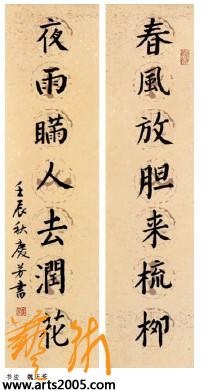 春風放胆来梳柳
夜雨瞞人去潤花
壬辰秋慶芳書
藝術
书法 魏庆芳
www.arts2005.com